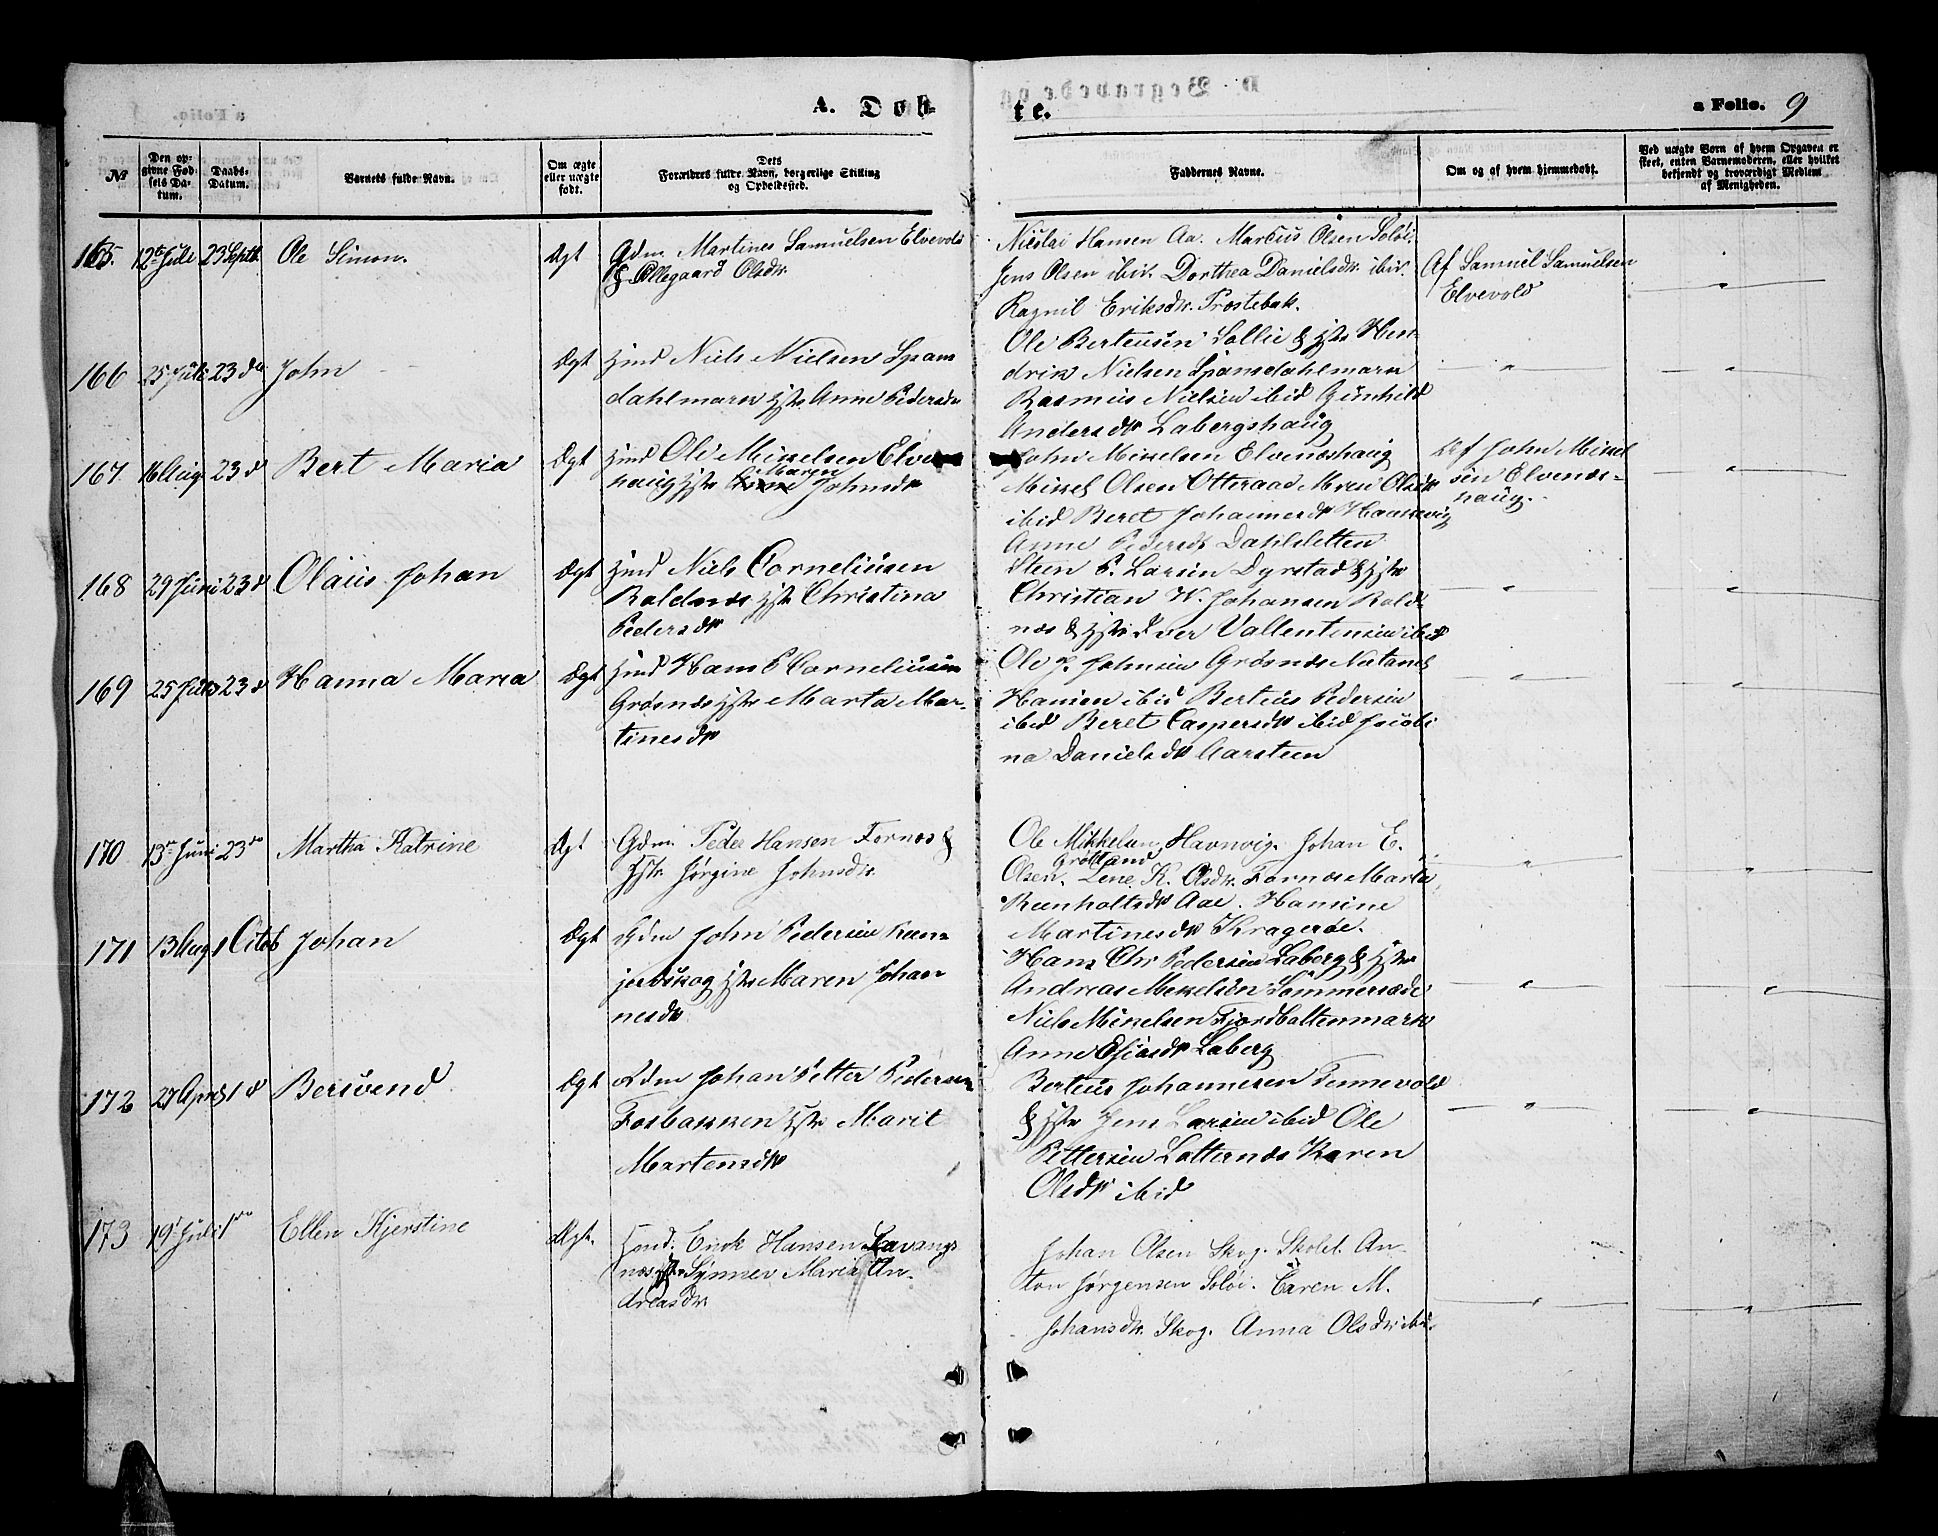 A. Døb-
te.
a Folio. 9
№
Den op-
givne Fød-
sels Da-
tum.
Daabs-
Datum.
Barnets fulde Navn.
Om ægte
eller uægte
født.
Dets
Forældres fulde Navn, borgerlige Stilling
og Opholdssted.
Faddernes Navne.
Om og af hvem hjemmedøbt.
Ved uægte Born af hvem Opgaven er
skeet, enten Barnemoderen, eller hvilket
bekjendt og troværdigt Medlem
af Menigheden.
165. 12te Juli 23 Septbr Ole Simon. Ægt Gdm. Martines Samuelsen Elvevold
& Ellegaard Olsdr.
Nicolai Hansen Aa. Marcus Olsen Soløi.
Jens Olsen ibid. Dorthea Danielsdr. ibid.
Ragnil Eriksdr. Prostebak.
Af Samuel Samuelsen
Elvevold
166 25 Juli 23 do John Ægt Hmd Niels Nielsen Spans
dahlmark Hstr Anne Pedersdr
Ole Berteusen Sollie & Hstr Hen
drik Nielsen Spansdahlmark
Rasmus Nielsen ibid Gunhild
Andersdr Labergshaug
167 16 Aug 23 d Bert Maria Ægt Hmd Ole Mikelsen Elve
haug Hstr Maren Johnsdr
John Mikelsen Elveneshaug
Mikkel Olsen Otteraae Maren Olsdr
ibid Beret Johannesdr
Anne Pedersdr Dahlsletten
Af John Mikel
sen Elvenes-
haug.
168 29 Juni 23 d Olaus Johan Ægt Hmd Niels Corneliusen
Roldnæs Hstr Christina
Pedersdr
Steen P. Larsen Dyrstad & Hstr
Christian W. Johansen Rold
næs & Hstr Iver Vallentinsen ibid
169 25 Juli 23 d Hanna Maria Ægt Hmd Hans P Corneliusen
Grøsnæs Hstr Marta Mar-
tinesdr
Ole P. Johnsen Grøsnæs Natanel
Hansen ibid Berteus Pedersen
ibid Beret Caspersdr ibid Jacobi
na Danielsdr Aarsteen
170 13de Juni 23 do Martha Katrine Ægt Gdm. Peder Hansen Fornæs &
Hstr. Jørgine Johnsdr.
Ole Mikkelsen Havnvig. Johan E.
Olsen Grøtland. Lene K. Olsdr. Fornæs Marta
Reenholtsdr Aae. Hansine
Martinesdr Kragerøe.
171 13 Aug 1 Octob Johan Ægt Gdm John Pedersen Reen-
jerdskog Hstr Maren Johan
nesdr
Hans Chr Pedersen Laberg & Hstr
Andreas Mekelsen Sommersæde
Niels Mikelsen Fjordboltenmark
Anne Esiasdr Laberg
172 27 April 1 d Bersvend Ægt Gdm Johan Petter Pedersen
Fosbakken Hstr Marit
Martensdr
Berteus Johannesen Tennevold
& Hstr Jens Larsen ibid Ole
Pettersen Lotternæs Karen
Olsdr ibid
173 19 Juli 1 do Ellen Kjerstine Ægt. Hmd. Enok Hansen Lavangs
næs Hstr Synnev Maria An-
dreasdr.
Johan Olsen Skog. Skolel. An-
ton Jørgensen Soløi. Caren M.
Johansdr. Skog. Anna Olsdr ibid.